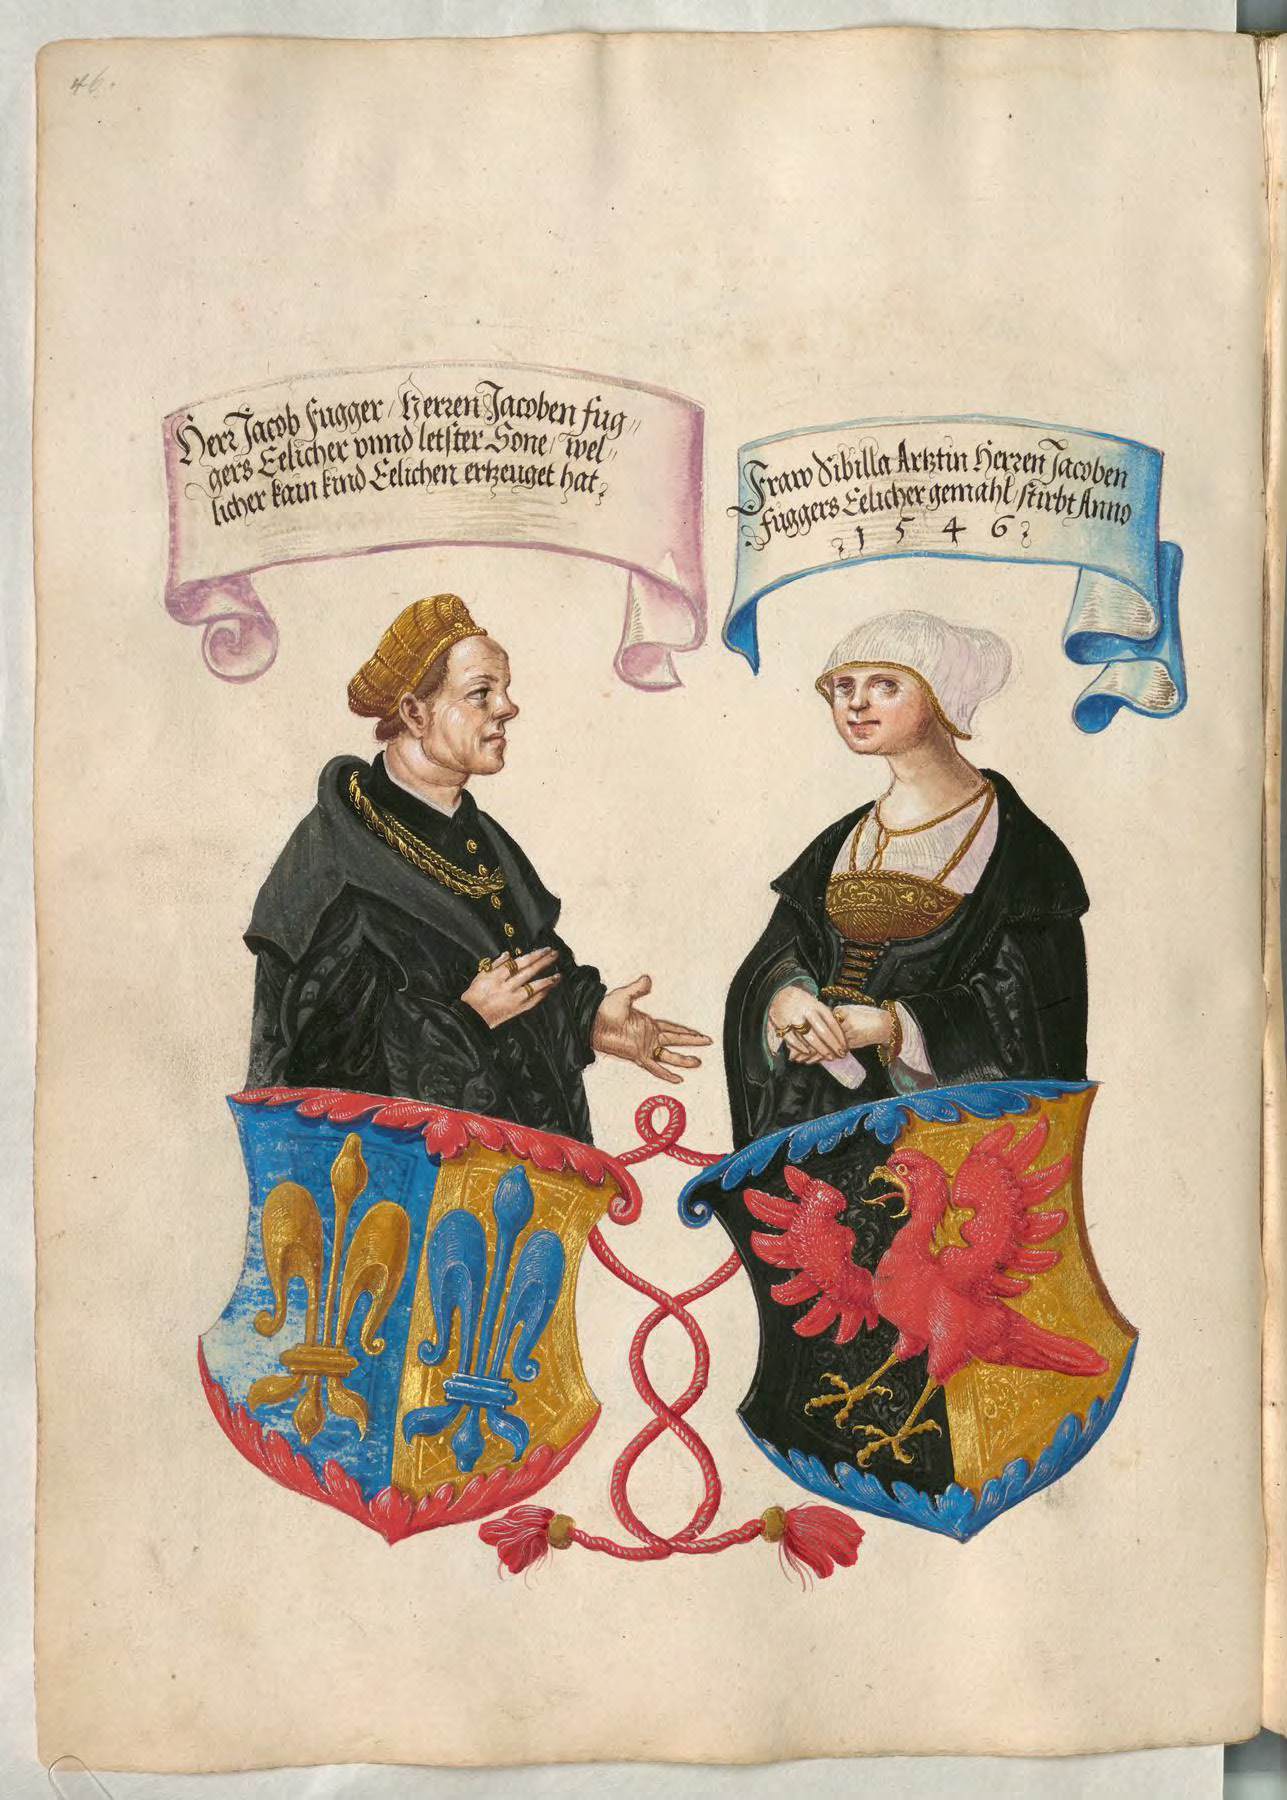 46.
Herr Jacob Fugger / Herren Jacoben Fug//
gers Eelicher vnnd letster Sone / wel//
licher kain kind Eelichen ertzeuget hat.
Fraw Sibilla Artztin Herren Jacoben
Fuggers Eelicher gemahl / stirbt Anno
1 5 4 6